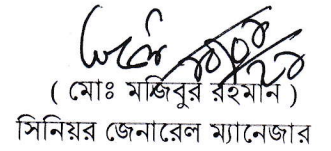 ( মোঃ মজিবুর রহমান )
সিনিয়র জেনারেল ম্যানেজার